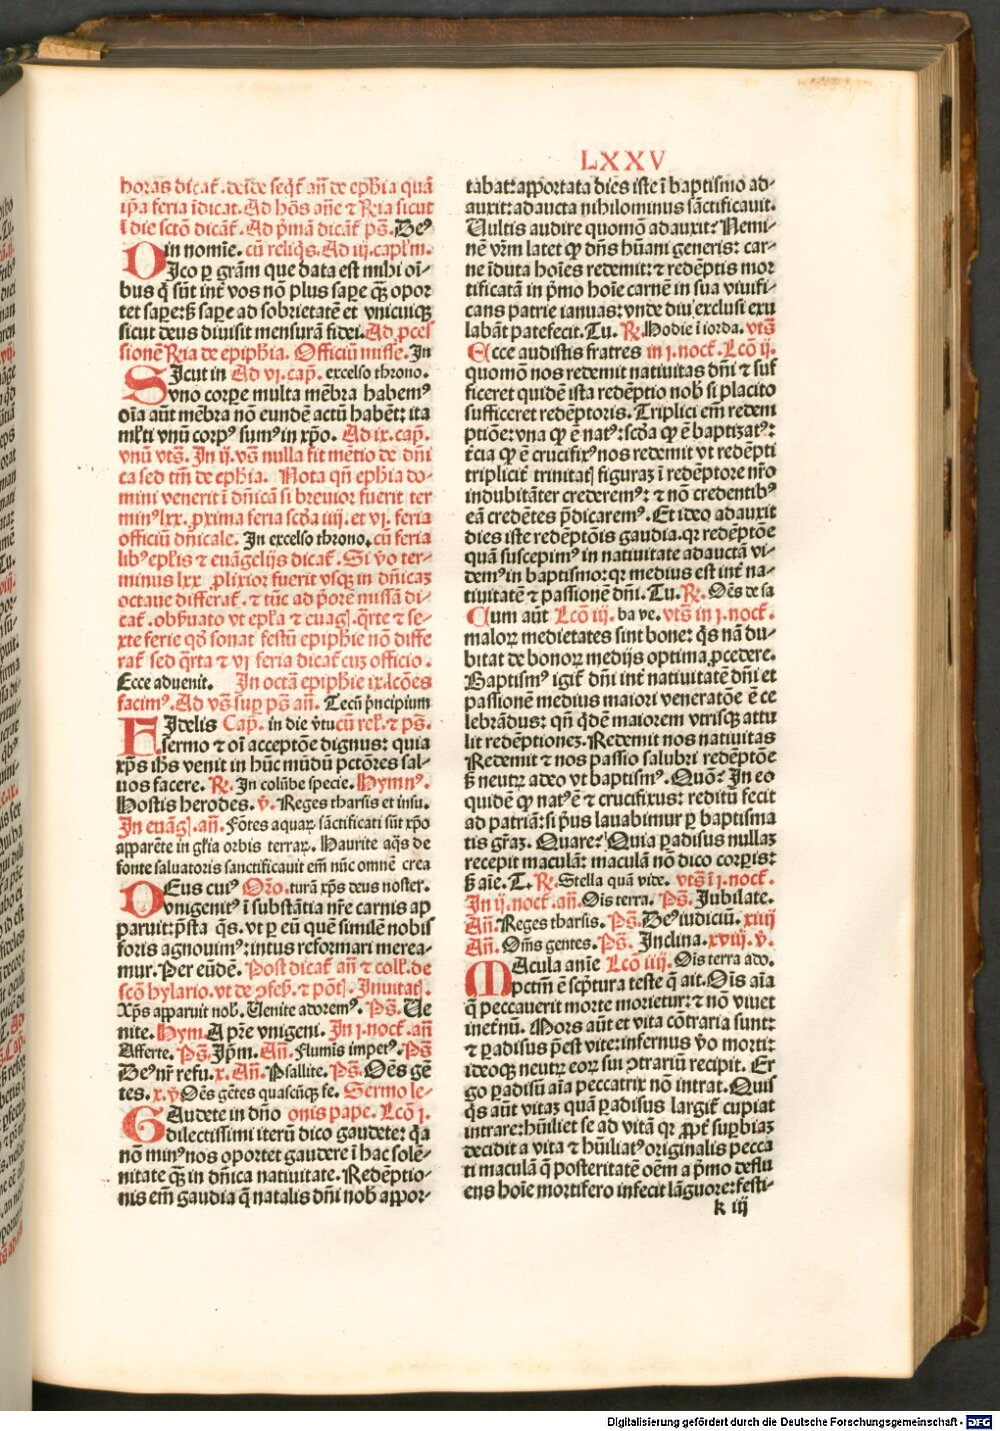 LXXV
horas dicat̃. deīde seqt̃ añ de eph̃ia quā
ip̃a feria īdicat. Ad hõs añe ⁊ R̃ia sicut
ī die sctō dicat̃. Ad p̃mā dicat̃ ps̃. Deꝰ
in nomīe. cū reliq̃s. Ad iij. capl̃m.
DIco ꝑ grãm que data est mihi oī-
bus q̃ sūt int̃ vos nō plus saꝑe q̃ꝫ opor
tet saꝑe: sꝫ saꝑe ad sobrietatē et vnicuiqꝫ
sicut deus diuisit mensurā fidei. Ad ꝓces
sionē R̃ia de epiph̃ia. Officiū misse. In
SIcut in Ad vi. cap̃. excelso throno.
vno corꝑe multa mēbra habemꝰ
oīa aūt mēbra nō eundē actū habēt: ita
ml̃ti vnū corpꝰ sumꝰ in xp̃o. Ad ix. cap̃.
vnū vts̃. In ij. vs̃ nulla fit mētio de dñi
ca sed tm̄ de eph̃ia. Nota qñ eph̃ia do-
mini venerit ī dñicā si breuior fuerit ter
minꝰ lxx. ꝓxima feria scd̃a iiij. et vj. feria
officiū dñicale. In excelso throno. cū feria
libꝰ epl̃is ⁊ euāgelijs dicat̃. Si v̊o ter-
minus lxx ꝓlixior fuerit vsqꝫ in dñicaꝫ
octaue differat̃. ⁊ tūc ad p̃orē missā di-
cat̃. obs̃uato vt epl̃a ⁊ euagl̃. q̃rte ⁊ se-
xte ferie qd̃ sonat festū epiph̃ie nō diffe
rat̃ sed q̃rta ⁊ vj feria dicat̃ cuꝫ officio.
Ecce aduenit. In octā epiph̃ie ix. lcōes
facimꝰ. Ad vs̃ suꝑ ps̃ añ. Tecū p̃ncipium
FIdelis Cap̃. in die v̊tu cū rel̃. ⁊ ps̃.
sermo ⁊ oī acceptōe dignus: quia
xp̃s ih̃s venit in hūc mūdū pctōres sal-
uos facere. R̃. In colūbe specie. Hymnꝰ.
Hostis herodes. v̊. Reges tharsis et insu.
In euāgl̃. añ. Fōtes aquaꝝ sāctificati sūt xp̃o
apparēte in gl̃ia orbis terraꝝ. Haurite aq̃s de
fonte saluatoris sanctificauit em̄ nūc omnē crea
DEus cuiꝰ Or̃o. turā xp̃s deus noster.
vnigenitꝰ ī substātia nr̃e carnis ap
paruit: p̃sta q̃s. vt ꝑ eū quē similē nobis
foris agnouimꝰ: intus reformari merea-
mur. Per eūdē. Post dicat̃ añ ⁊ coll̃. de
scō hylario. vt de ꝯfes̃. ⁊ pōt̃. Inuitat̃.
Xp̃s apparuit nob̃. Uenite adoremꝰ. Ps̃. Ue
nite. Hym. A pr̃e vnigeni. In j. noct̃. añ
Afferte. Ps̃. Ip̃m. Añ. Flumīs impetꝰ. Ps̃
Deꝰ nr̃ refu. x. Añ. Psallite. Ps̃. Oēs gē
tes. x. v̊ Oēs gētes quascūqꝫ fe. Sermo le-
GAudete in dño onis pape. Lcō j.
dilectissimi iterū dico gaudete: q̃a
nō minꝰ nos oportet gaudere ī hac solē-
nitate q̃ꝫ in dñica natiuitate. Redēptio-
nis em̄ gaudia q̃ natalis dñi nob̃ appor-
tabat: apportata dies iste ī baptismo ad-
auxit: adaucta nihilominus sāctificauit.
Uultis audire quomō adauxit: Nemi-
nē vr̃m latet ꝙ dñs hūani generis: car-
ne īduta hoīes redemit: ⁊ redēptis mor
tificatā in p̃mo hoīe carnē in sua viuifi-
cans patrie ianuas: vnde diu exclusi exu
labāt patefecit. Tu. R̃. Hodie ī iorda. vts̃
Ecce audistis fratres in j. noct̃. Lcō ij.
quomō nos redemit natiuitas dñi ⁊ suf
ficeret quidē ista redēptio nob̃ si placito
sufficeret redēptoris. Triplici em̄ redem
ptiōe: vna ꝙ ē natꝰ: scd̃a ꝙ ē baptizatꝰ:
t̃cia ꝙ ē crucifixꝰ nos redemit vt redēpti
triplicit̃ trinitat̃ figuraꝫ ī redēptore nr̃o
indubitāter crederemꝰ: ⁊ nō credentibꝰ
eā credētes p̃dicaremꝰ. Et ideo adauxit
dies iste redēptōis gaudia. qꝛ redēptōe
quā suscepimꝰ in natiuitate adauctā vi-
demꝰ in baptismo: qꝛ medius est int̃ na-
tiuitatē ⁊ passionē dñi. Tu. R̃. Oēs de sa
Cum aūt Lcō iij. ba ve. vts̃ in j. noct̃.
maloꝝ medietates sint bone: q̃s nā du-
bitat de bonoꝝ medijs optima ꝓcedere.
Baptismꝰ igit̃ dñi int̃ natiuitatē dñi et
passionē medius maiori veneratōe ē ce
lebrādus: qñ q̃dē maiorem vtrisqꝫ attu
lit redēptioneꝫ. Redemit nos natiuitas
Redemit ⁊ nos passio salubri redēptōe
sꝫ neutꝝ adeo vt baptismꝰ. Quō? In eo
quidē ꝙ natꝰ ē ⁊ crucifixus: reditū fecit
ad patriā: si p̃us lauabimur ꝑ baptisma
tis gr̃aꝫ. Quare? Quia ꝑadisus nullaꝫ
recepit maculā: maculā nō dico corꝑis:
sꝫ aīe. T. R̃. Stella quā vide. vts̃ ī j. noct̃.
In ij. noct̃. añ. Oīs terra. Ps̃. Jubilate.
Añ. Reges tharsis. Ps̃. Deꝰ iudiciū. xiiij
Añ. Om̄s gentes. Ps̃. Inclina. xviij. v̊.
MAcula anīe Lcō iiij. Oīs terra ado.
pctm̄ ē sc̃ptura teste q̃ ait. Oīs aīa
q̃ peccauerit morte morietur: ⁊ nō viuet
inet̃nū. Mors aūt et vita cōtraria sunt:
⁊ ꝑadisus p̃est vite: infernus v̊o morti:
ideoqꝫ neutꝝ eoꝝ sui ꝯtrariū recipit. Er
go ꝑadisū aīa peccatrix nō intrat. Quis
q̃s aūt vitaꝫ quā ꝑadisus largit̃ cupiat
intrare: hūiliet se ad vitā qꝛ ꝓpt̃ suꝑbiaꝫ
decidit a vita ⁊ hūiliatꝰ originalis pecca
ti maculā q̃ posteritatē oēm a p̃mo deflu
ens hoīe mortifero infecit lāguore: festi-
k iij
Digitalisierung gefördert durch die Deutsche Forschungsgemeinschaft - DFG